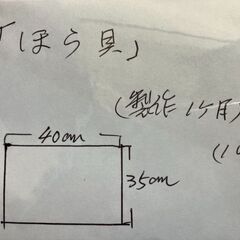 「ほら貝」
(製作1ヶ月
40cm
35cm